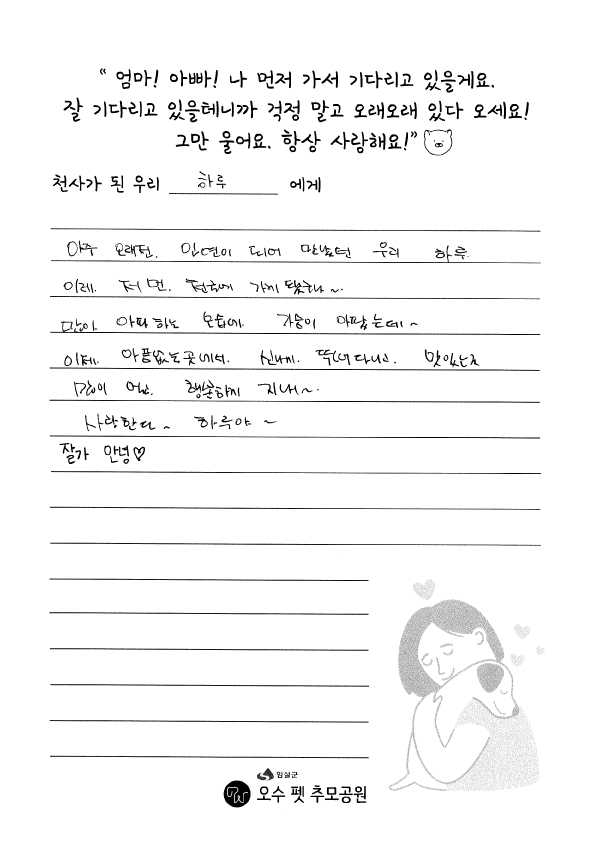 “ 엄마! 아빠! 나 먼저 가서 기다리고 있을게요.
잘 기다리고 있을테니까 걱정 말고 오래오래 있다 오세요!
그만 울어요. 항상 사랑해요!”
천사가 된 우리 하루 에게
아주 오래전. 인연이 되어 만났던 우리 하루.
이제. 저 먼. 천국에 가게 됐구나~.
많이. 아파하는 모습에. 가슴이 아팠는데~
이제. 아픔없는곳에서. 신나게. 뛰어다니고. 맛있는거
많이 먹고. 행복하게 지내~.
사랑한다~ 하루야~
잘가 안녕♡
임실군
오수 펫 추모공원